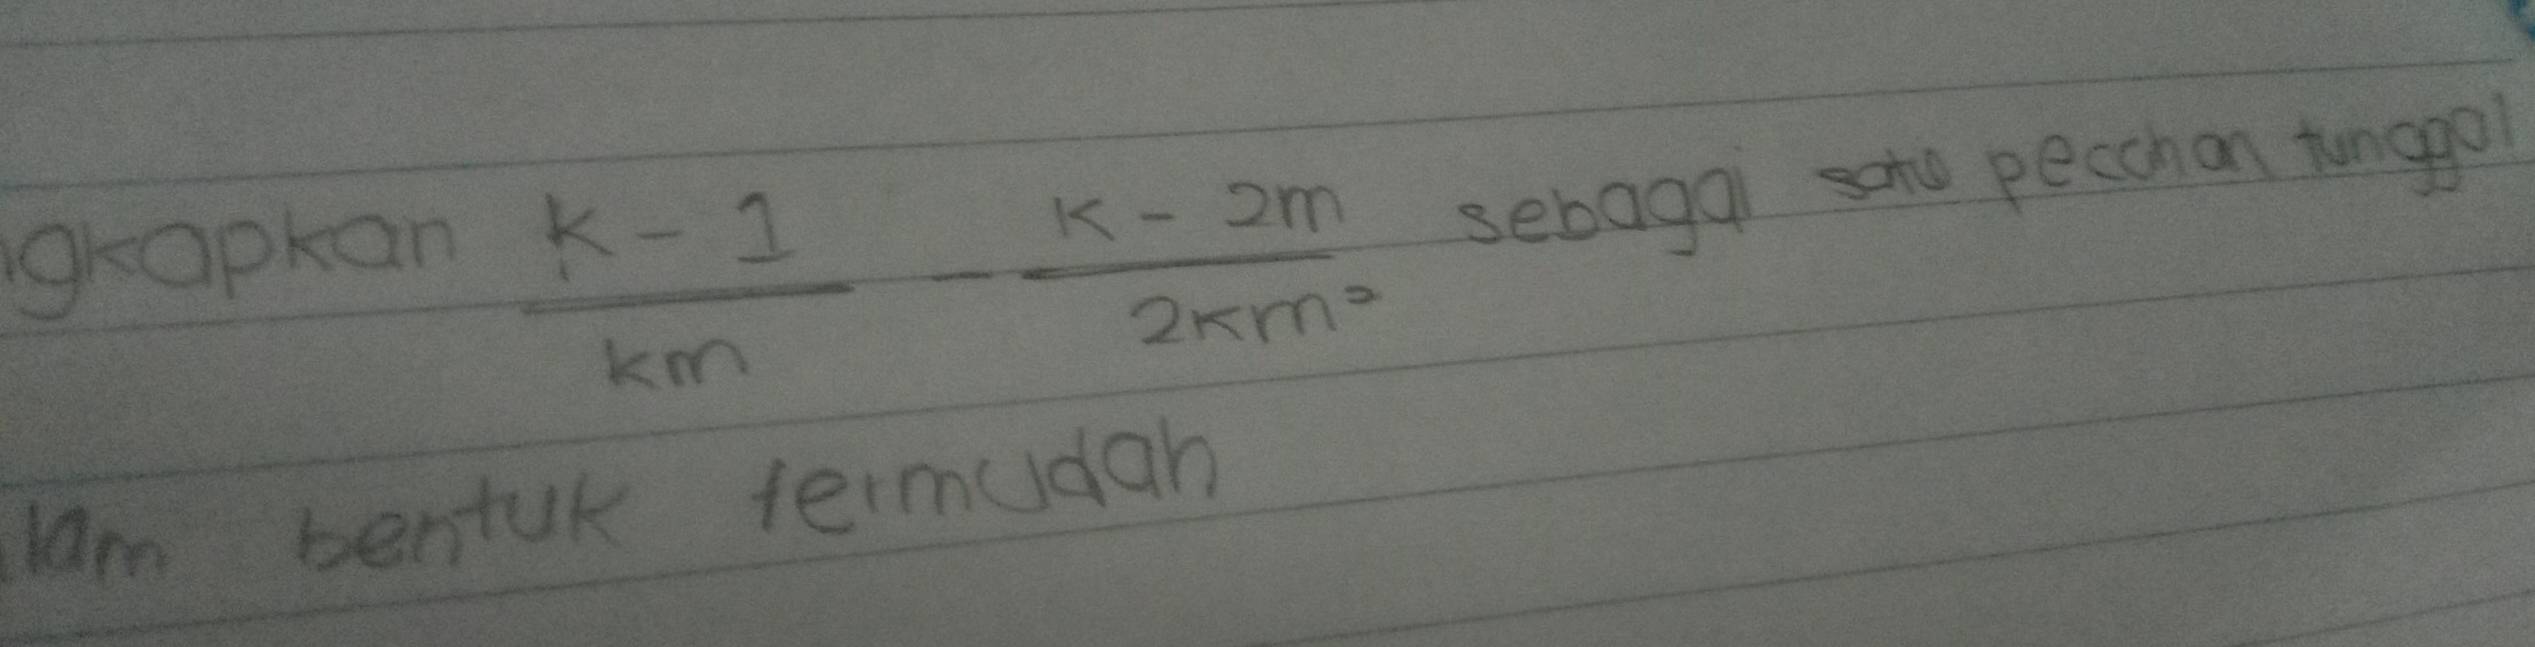 ngkapkan k - 1 / km - k - 2m / 2km² sebagai pecchan tunggal
lam bentuk termudah